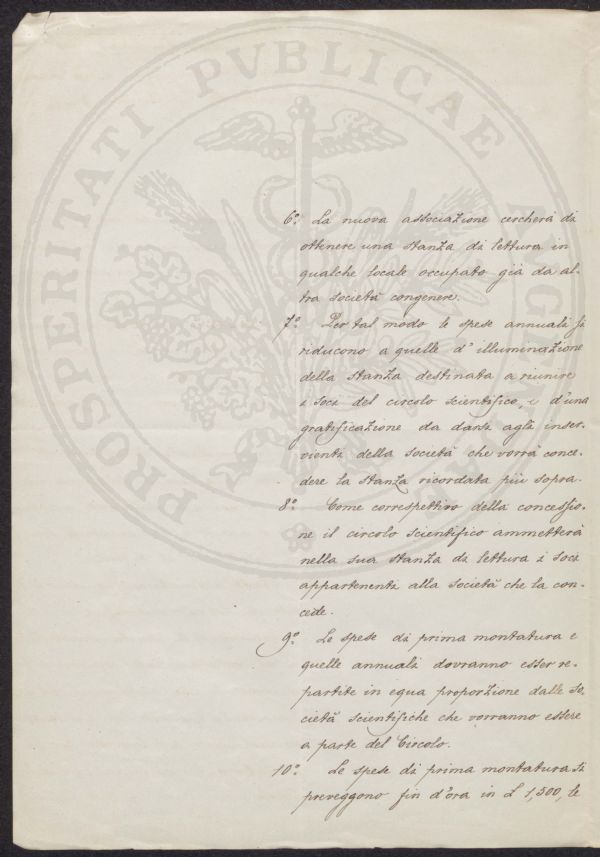 PROSPERITATI PVBLICAE
6º. La nuova associazione cercherà di
ottenere una stanza di lettura in
qualche locale occupato già da al-
tra società congenere.
7º. Per tal modo le spese annuali si
riducono a quelle d'illuminazione
della stanza destinata a riunire
i soci del circolo scientifico, e d'una
gratificazione da darsi agli inser-
vienti della società che vorrà conce-
dere la stanza ricordata più sopra.
8º. Come correspettivo della concessio-
ne il circolo scientifico ammetterà
nella sua stanza di lettura i soci
appartenenti alla società che la con-
cede.
9º. Le spese di prima montatura e
quelle annuali dovranno esser re-
partite in equa proporzione dalle so
cietà scientifiche che vorranno essere
a parte del Circolo.
10º. Le spese di prima montatura si
preveggono fin d'ora in £ 1,500, le